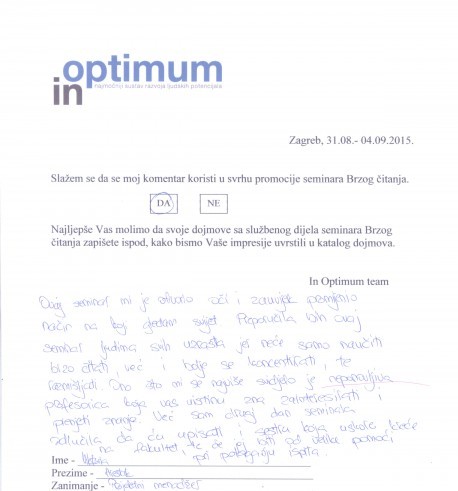 optimum
in
najmoćniji sustav razvoja ljudskih potencijala
Zagreb, 31.08.- 04.09.2015.
Slažem se da se moj komentar koristi u svrhu promocije seminara Brzog čitanja.
DA NE
Najljepše Vas molimo da svoje dojmove sa službenog dijela seminara Brzog
čitanja zapišete ispod, kako bismo Vaše impresije uvrstili u katalog dojmova.
In Optimum team
Ovaj seminar mi je otvorio oči i zauvijek promijenio
način na koji gledam svijet Preporučila bih ovaj
seminar ljudima svih uzrasta jer neće samo naučiti
brzo čitati, već i bolje se koncentrirati, te
razmišljati. Ono što mi se najviše svidjelo je
profesorica koja vas uistinu zna zainteresirati i
prenjeti znanje. Već sam drugi dan seminara
odlučila da ću upisati i sestru koja uskoro kreće
na fakultet te će joj biti od velike pomoći
pri polaganju ispita.
Ime -
Prezime -
Zanimanje - menadžer